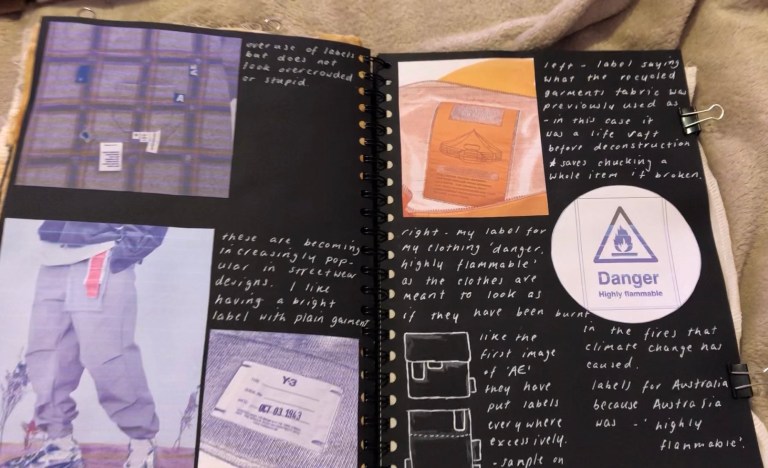 over use of labels
but does not
look overcrowded
or stupid.
these are becoming
increasingly pop-
ular in streetwear
designs. I like
having a bright
label with plain garment
Y-3
OCT 03.1943
left - label saying
what the recycled
garments fabric was
previously used as
- in this case it
was a life raft
before deconstruction
* saves chucking a
whole item if broken.
right - my label for
my clothing 'danger.
highly flammable'
as the clothes are
meant to look as
if they have been burnt
in the fires that
climate change has
caused.
labels for Australia
because Australia
was - 'highly
flammable'.
Danger
Highly flammable
like the
first image
of 'AE'
they have
put labels
everywhere
excessively.
- sample on